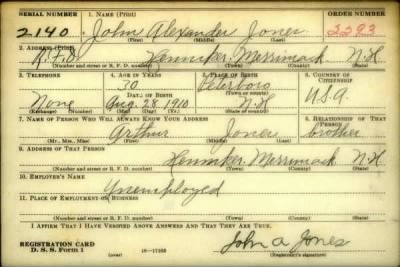 SERIAL NUMBER 1. NAME (Print) ORDER NUMBER
2140 John Alexander Jones 2293
(First) (Middle) (Last)
2. ADDRESS (Print)
R.F.D. Henniker Merrimack N.H.
(Number and street or R. F. D. number) (Town) (County) (State)
3. TELEPHONE 4. AGE IN YEARS 5. PLACE OF BIRTH 6. COUNTRY OF CITIZENSHIP
30 Peterboro
DATE OF BIRTH
None Aug. 28 1910 N.H. U.S.A.
(Exchange) (Number) (Mo.) (Day) (Yr.) (State or country)
7. NAME OF PERSON WHO WILL ALWAYS KNOW YOUR ADDRESS 8. RELATIONSHIP OF THAT PERSON
Arthur Jones brother
(Mr., Mrs., Miss) (First) (Middle) (Last)
9. ADDRESS OF THAT PERSON
Henniker Merrimack N.H.
(Number and street or R. F. D. number) (Town) (County) (State)
10. EMPLOYER'S NAME
Unemployed
11. PLACE OF EMPLOYMENT OR BUSINESS
(Number and street or R. F. D. number) (Town) (County) (State)
I AFFIRM THAT I HAVE VERIFIED ABOVE ANSWERS AND THAT THEY ARE TRUE.
REGISTRATION CARD
D. S. S. Form 1 John A Jones
(over) (Registrant's signature)